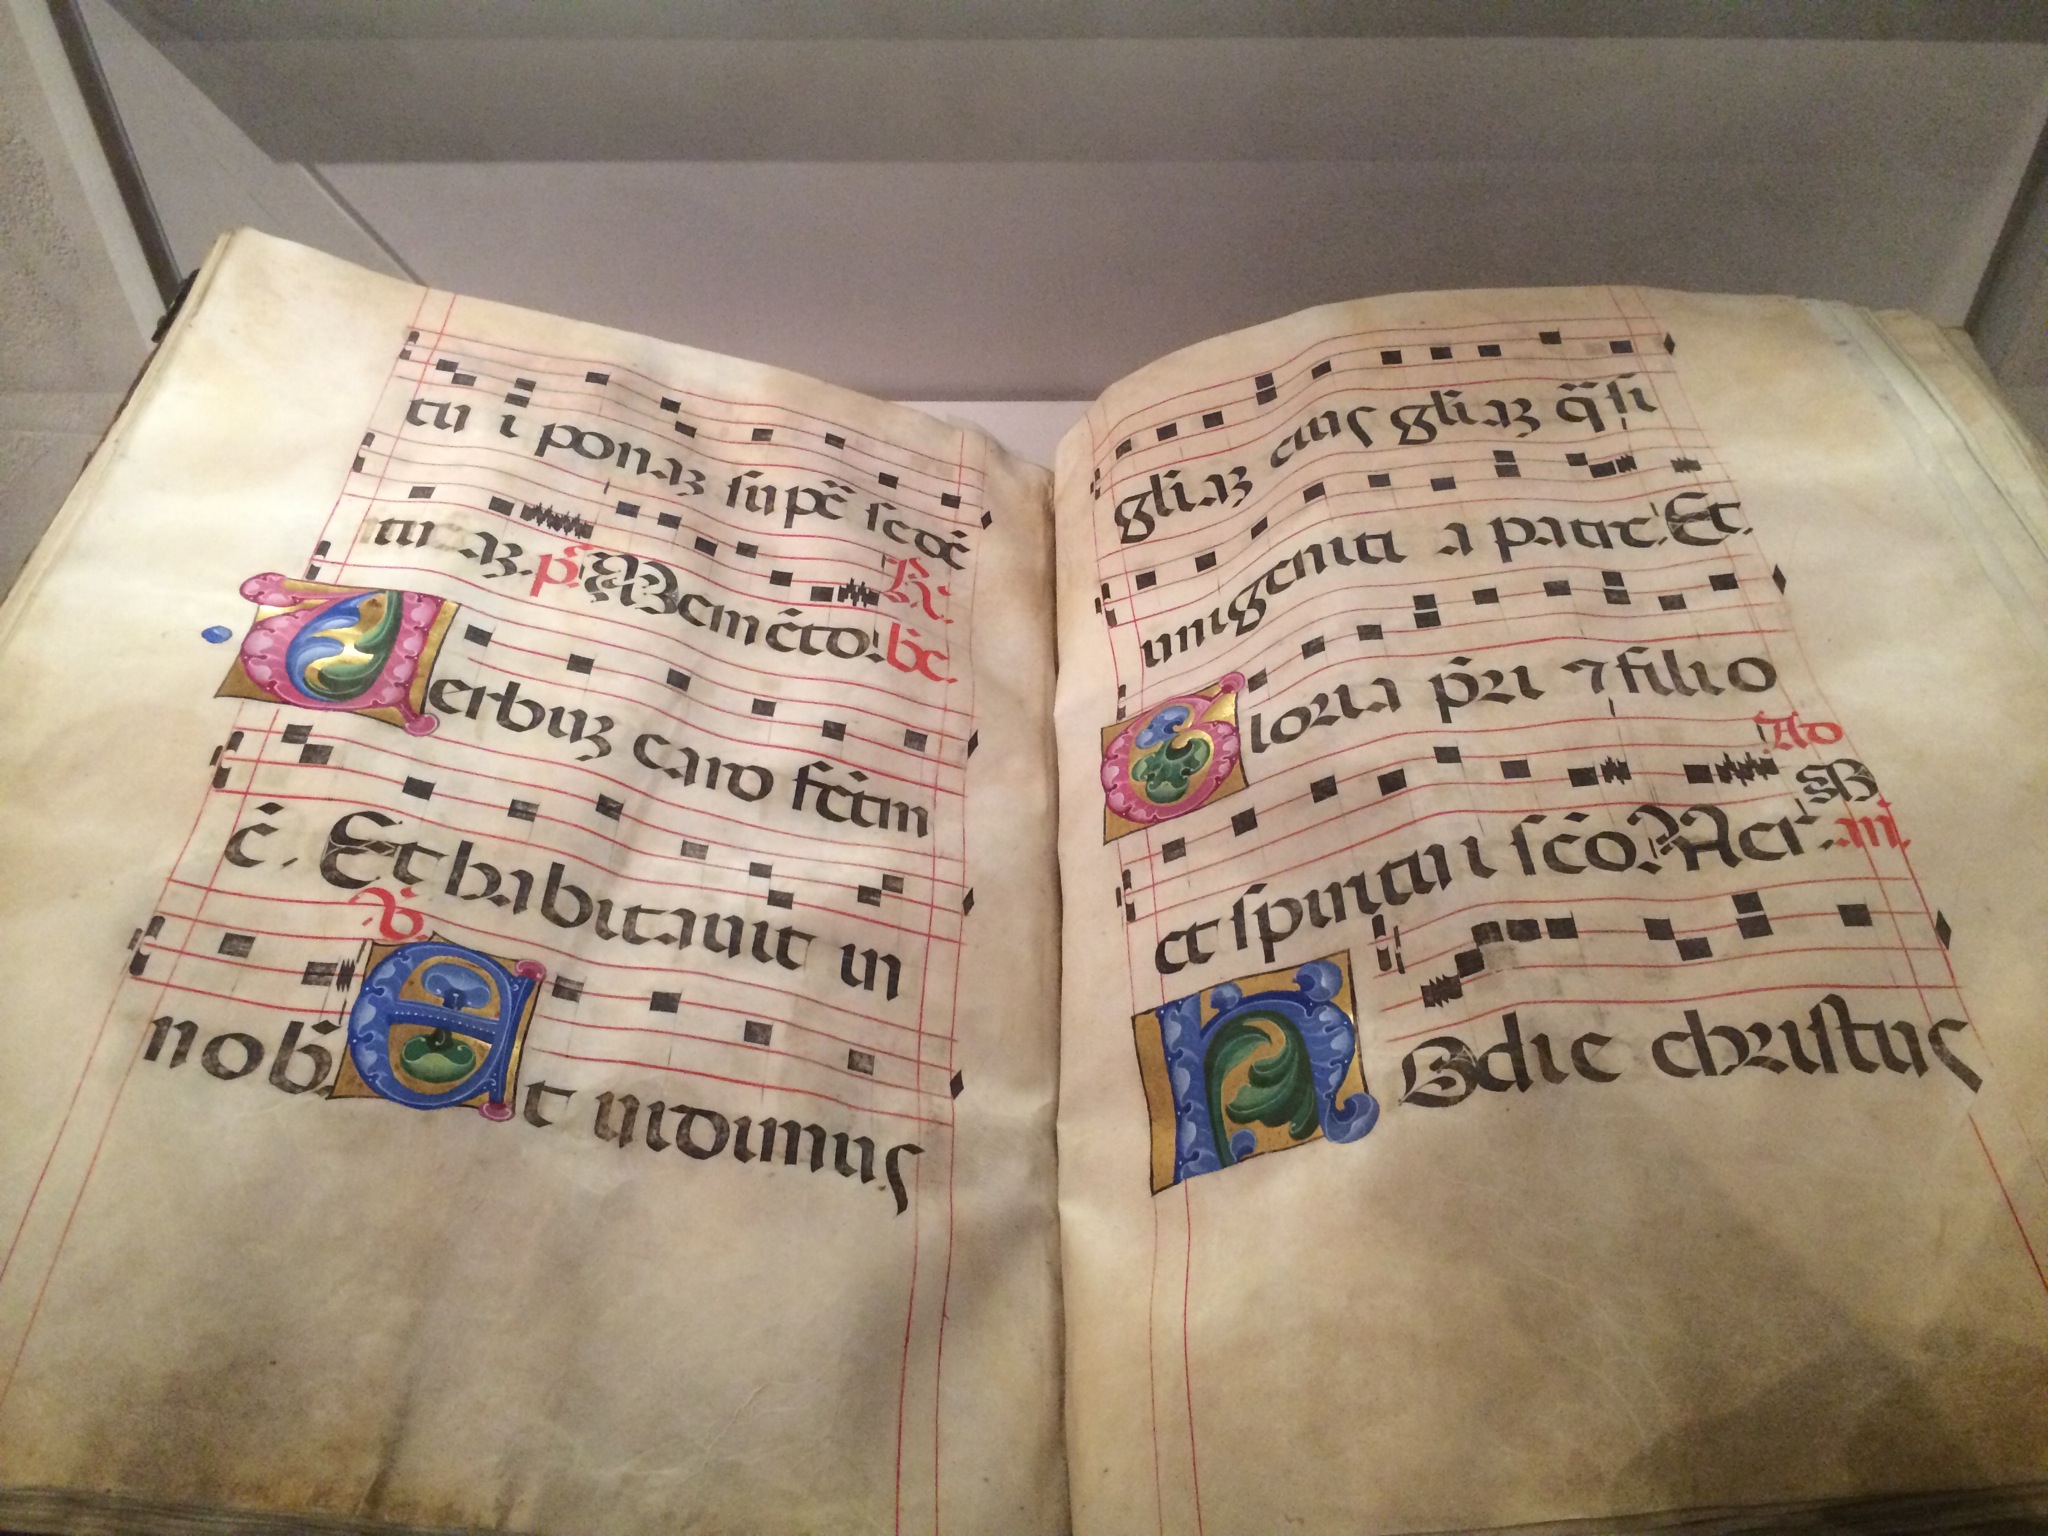 tu i ponaȝ sup sc̄
tu aȝ. ps Memēto. br̄e. R.
Verbuȝ caro fc̄tm
ē. Et habitauit in
nob̄. V. Et uidimus
gliaȝ eius gliaȝ q̄si
unigeniti a patre. Et.
Gloria pr̄i ⁊ filio
et spiritui sc̄o. Ad
Hodie christus